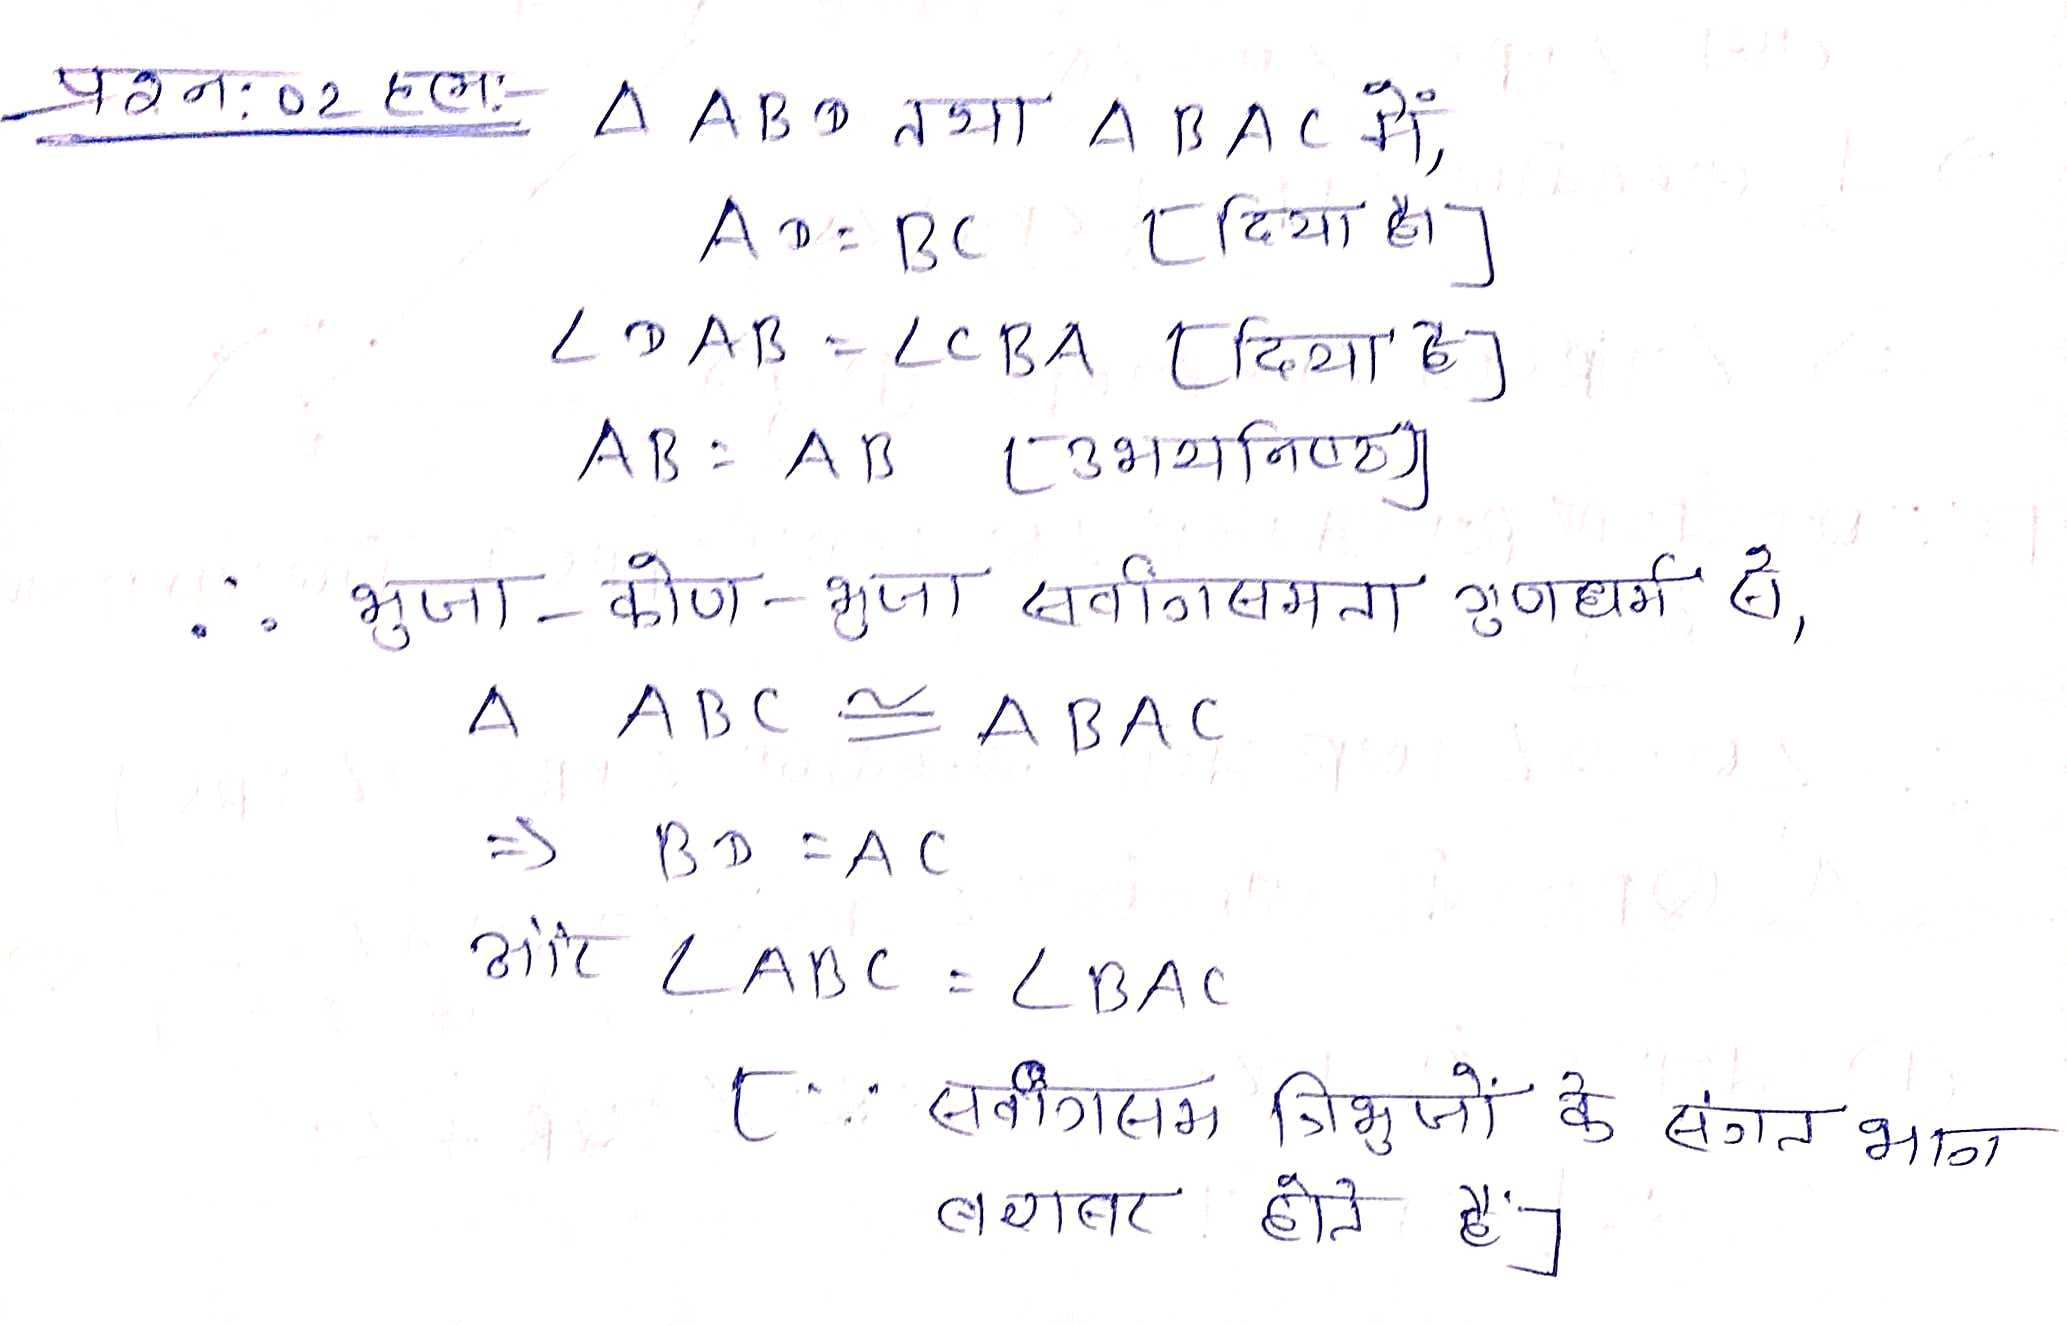 प्रश्न: 02 हल:- Δ ABD तथा Δ BAC में,
AD = BC [दिया है।]
∠DAB = ∠CBA [दिया है]
AB = AB [उभयनिष्ठ]
∴ भुजा - कोण - भुजा सर्वांगसमता गुणधर्म से,
Δ ABC ≅ Δ BAC
⇒ BD = AC
और ∠ABC = ∠BAC
[∵ सर्वांगसम त्रिभुजों के संगत भाग
बराबर होते हैं]